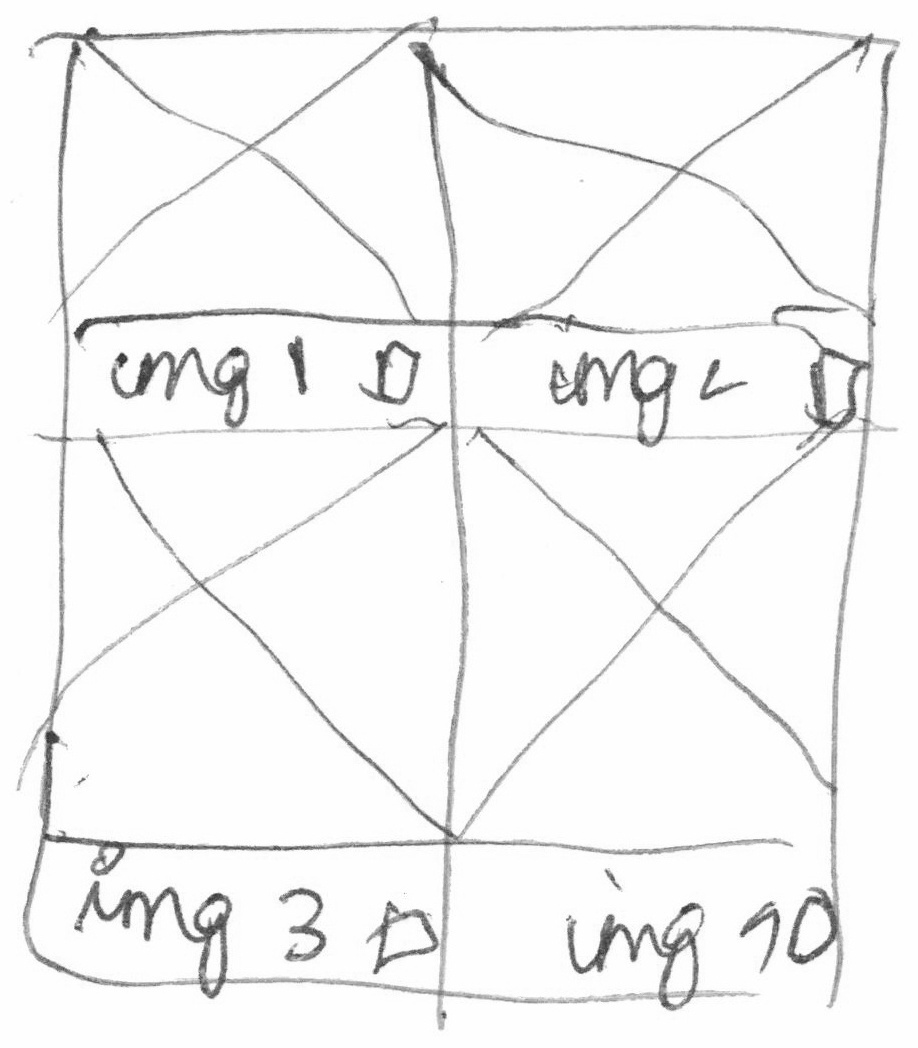 img 1
img 2
img 3
img